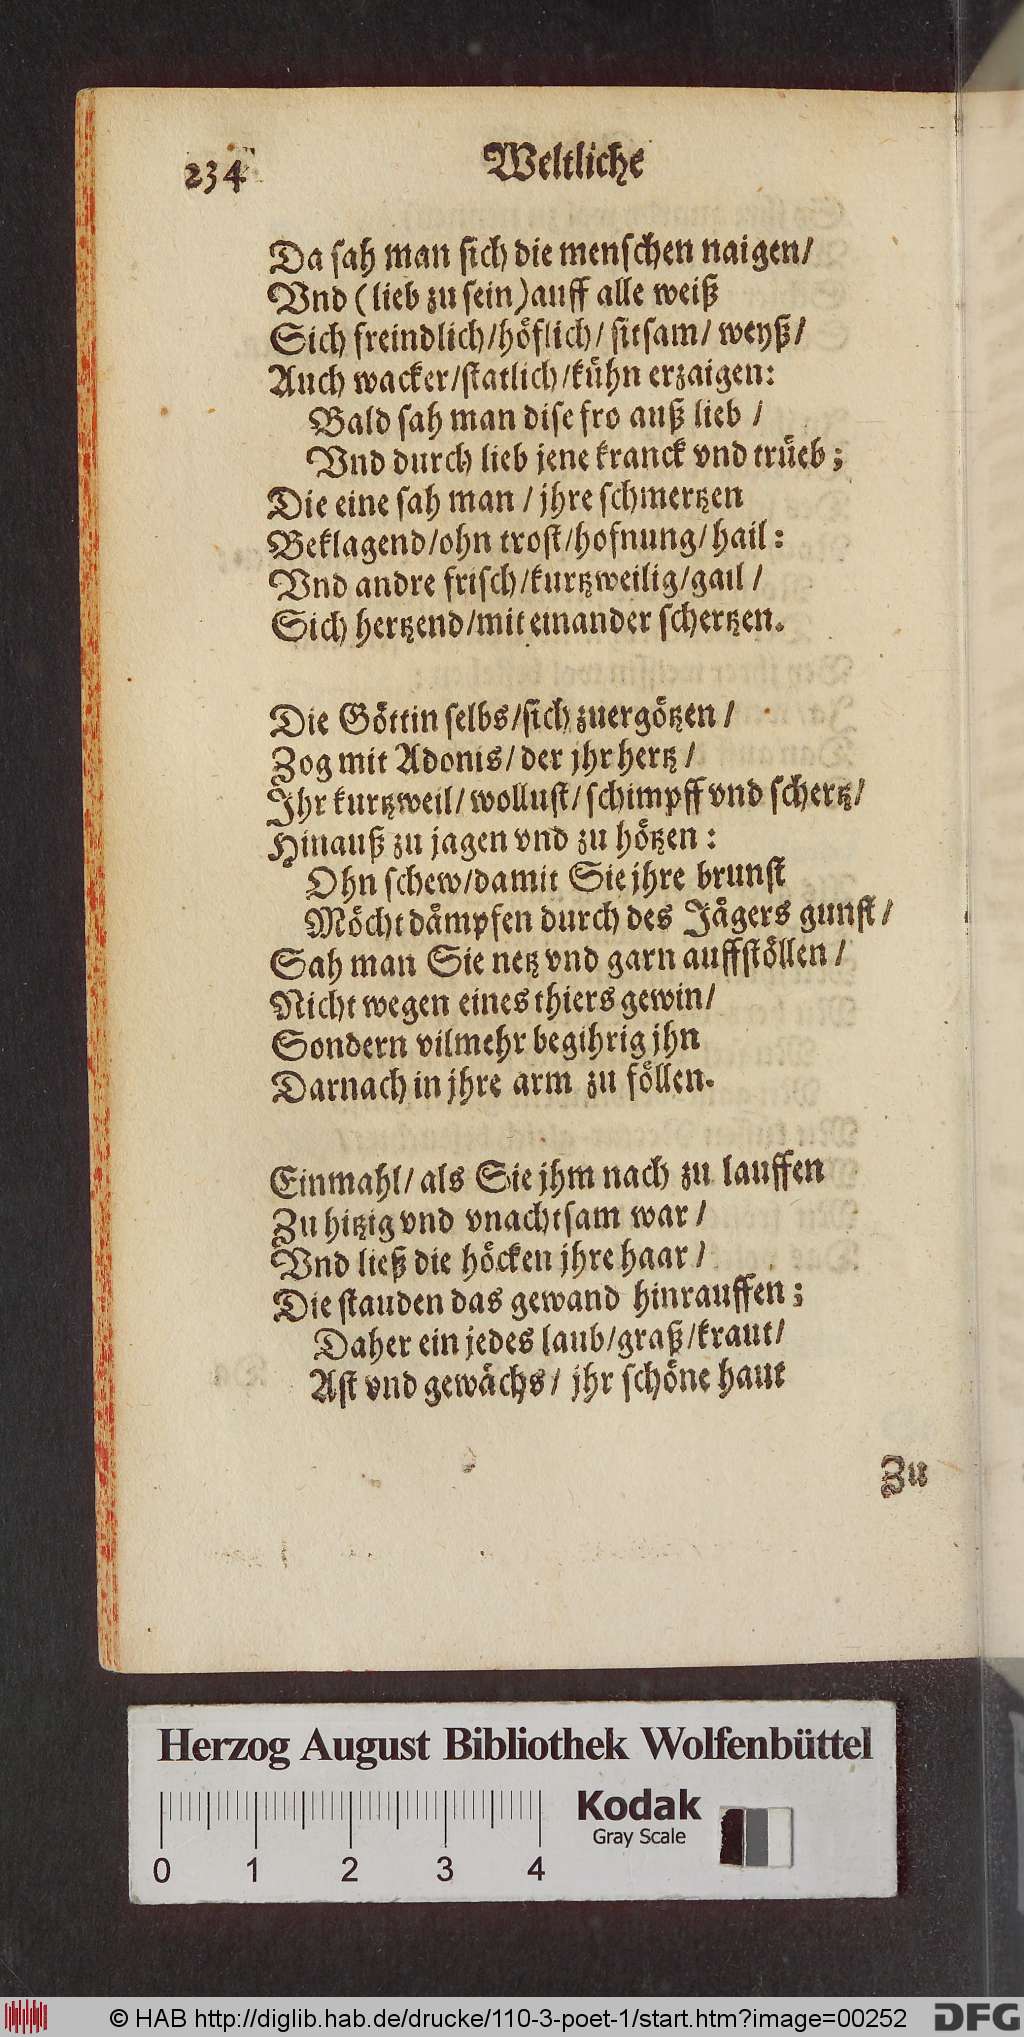 234
Weltliche
Da sah man sich die menschen naigen/
Vnd (lieb zu sein) auff alle weiß
Sich freindlich/höflich/ sitsam/ weyß/
Auch wacker/statlich/kühn erzaigen:
Bald sah man dise fro auß lieb /
Vnd durch lieb jene kranck vnd trüeb;
Die eine sah man / jhre schmertzen
Beklagend/ohn trost/hofnung/ hail:
Vnd andre frisch/kurtzweilig/gail /
Sich hertzend/mit einander schertzen.
Die Göttin selbs/sich zuergötzen /
Zog mit Adonis/ der jhr hertz /
Jhr kurtzweil/ wollust/ schimpff vnd schertz/
Hinauß zu jagen vnd zu hötzen:
Ohn schew/damit Sie jhre brunst
Möcht dämpfen durch des Jägers gunst /
Sah man Sie netz vnd garn auffstöllen /
Nicht wegen eines thiers gewin/
Sondern vilmehr begihrig jhn
Darnach in jhre arm zu föllen.
Einmahl/ als Sie jhm nach zu lauffen
Zu hitzig vnd vnachtsam war /
Vnd ließ die höcken jhre haar /
Die stauden das gewand hinrauffen;
Daher ein jedes laub/graß/kraut/
Ast vnd gewächs/ jhr schöne haut
Zu
Herzog August Bibliothek Wolfenbüttel
0 1 2 3 4
Kodak
Gray Scale
© HAB http://diglib.hab.de/drucke/110-3-poet-1/start.htm?image=00252
DFG